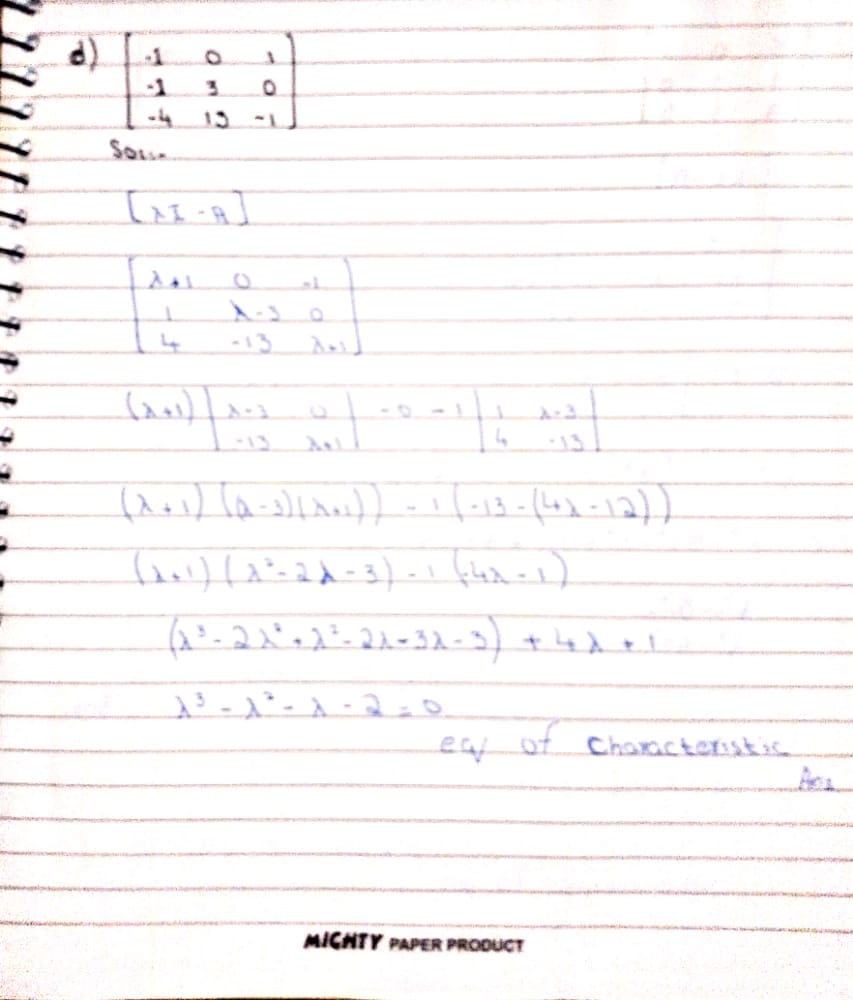 d) [-1 0 1
-1 3 0
-4 13 -1]
Sol:-
[λI - A]
[λ+1 0 -1
1 λ-3 0
4 -13 λ+1]
(λ+1) |λ-3 0 | -0 -1 |1 λ-3|
|-13 λ+1| |4 -13|
(λ+1) ((λ-3)(λ+1)) - 1 (-13-(4λ-12))
(λ+1) (λ²-2λ-3) - 1 (-4λ-1)
(λ³-2λ²+λ²-2λ-3λ-3) + 4λ + 1
λ³ - λ² - λ - 2 = 0
eq of Characteristic
Ans
MIGHTY PAPER PRODUCT